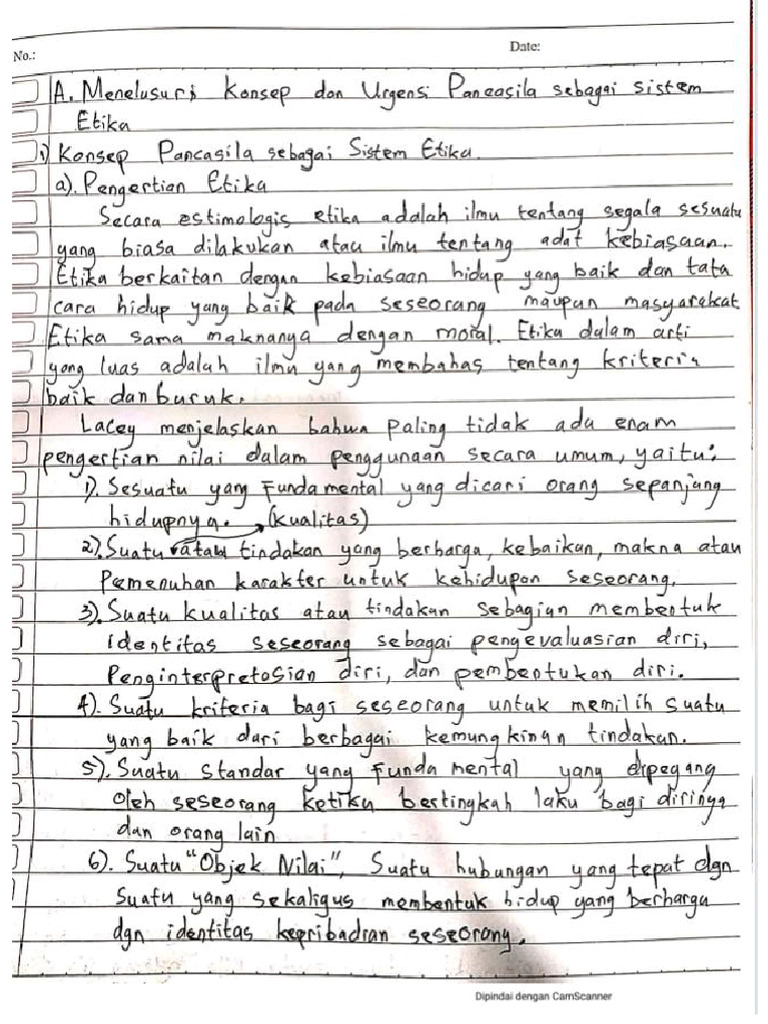 No.:
Date:
A. Menelusuri Konsep dan Urgensi Pancasila sebagai sistem
Etika
1) Konsep Pancasila sebagai Sistem Etika.
a). Pengertian Etika
Secara estimologis etika adalah ilmu tentang segala sesuatu
yang biasa dilakukan atau ilmu tentang adat kebiasaan.
Etika berkaitan dengan kebiasaan hidup yang baik dan tata
cara hidup yang baik pada seseorang maupun masyarakat
Etika sama maknanya dengan moral. Etika dalam arti
yang luas adalah ilmu yang membahas tentang kriteria
baik dan buruk.
Lacey menjelaskan bahwa paling tidak ada enam
pengertian nilai dalam penggunaan secara umum, yaitu:
1). Sesuatu yang Fundamental yang dicari orang sepanjang
hidupnya. (kualitas)
2). Suatu atau tindakan yang berharga, kebaikan, makna atau
Pemenuhan karakter untuk kehidupan seseorang.
3). Suatu kualitas atau tindakan sebagian membentuk
identitas seseorang sebagai pengevaluasian diri,
Penginterpretasian diri, dan pembentukan diri.
4). Suatu kriteria bagi seseorang untuk memilih suatu
yang baik dari berbagai kemungkinan tindakan.
5). Suatu standar yang Fundamental yang dipegang
oleh seseorang ketika bertingkah laku bagi dirinya
dan orang lain
6). Suatu "Objek Nilai", Suatu hubungan yang tepat dgn
Suatu yang sekaligus membentuk hidup yang berharga
dgn identitas kepribadian seseorang.
Dipindai dengan CamScanner